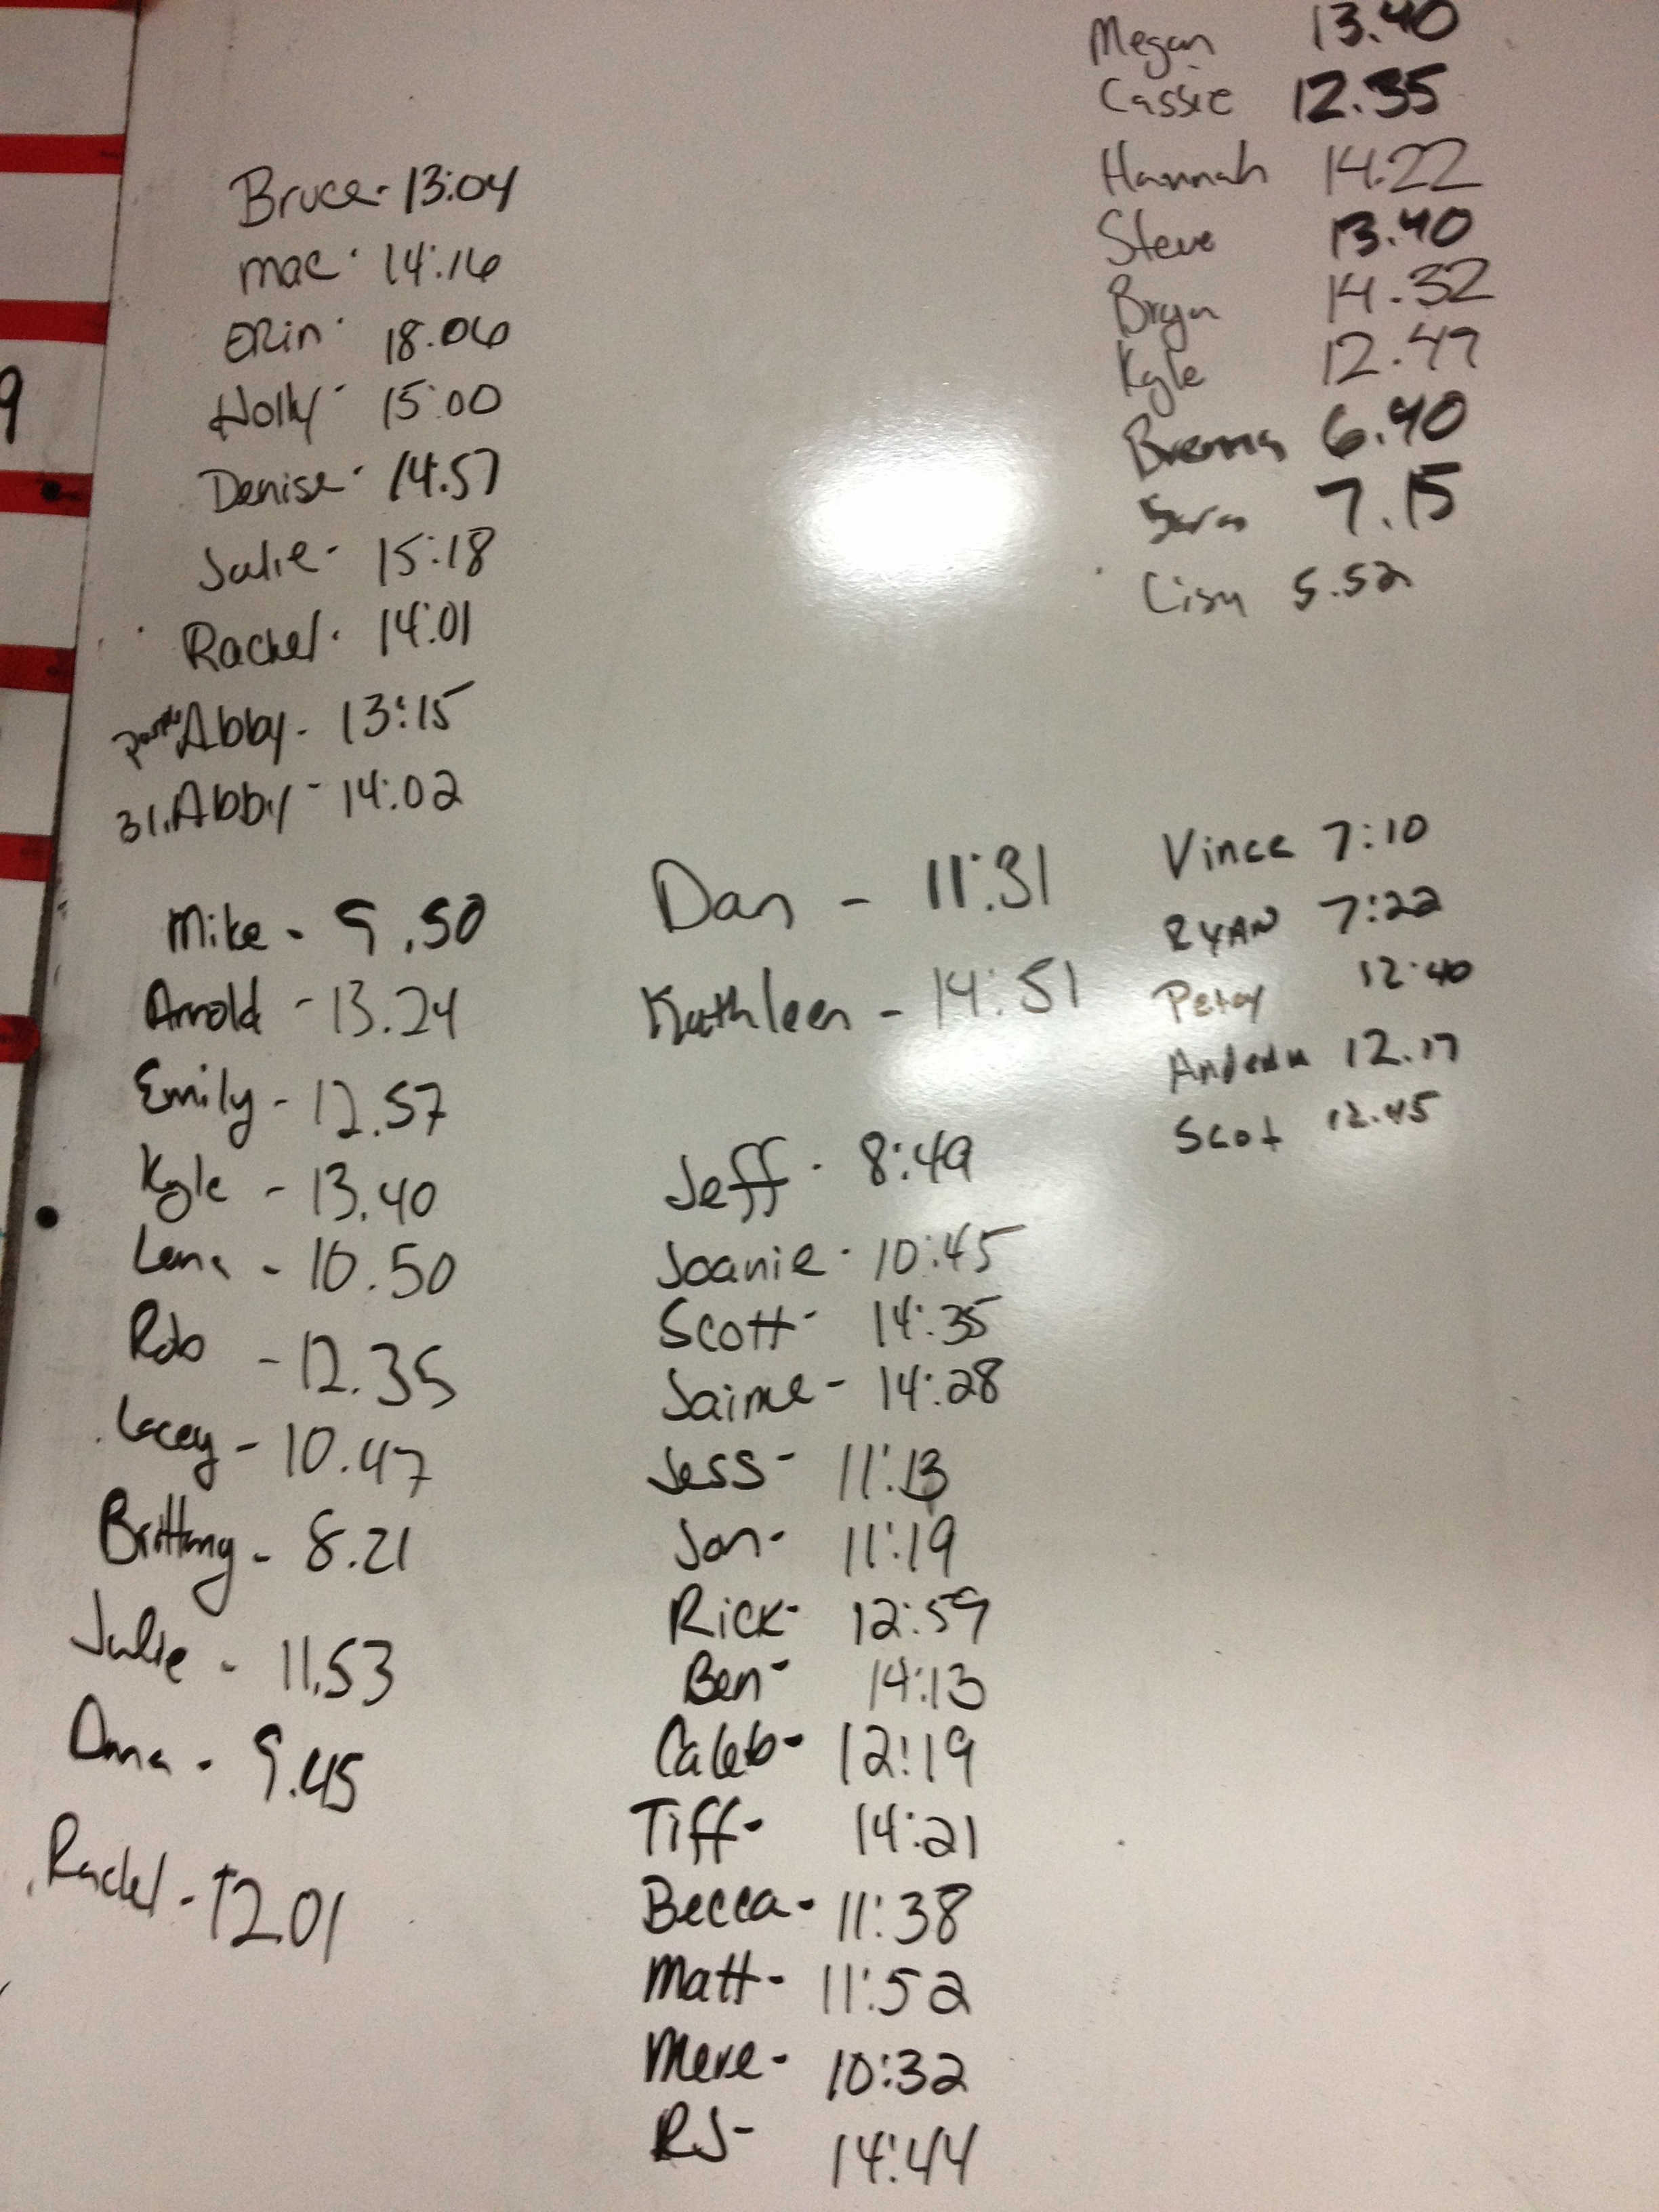 9
Bruce- 13:04
mac- 14:16
ERin- 18:06
Holly- 15:00
Denise- 14:57
Julie- 15:18
Rachel- 14:01
Abby- 13:15
31.Abby- 14:02
Mike - 9.50
Arnold - 13.24
Emily - 12.57
Kyle - 13.40
Lena - 10.50
Rob - 12.35
Lacey - 10.47
Brittany - 8.21
Julie - 11.53
Dana - 9.45
Rachel - 12.01
Dan - 11:31
Kathleen - 14:51
Jeff- 8:49
Joanie- 10:45
Scott- 14:35
Jaime- 14:28
Jess- 11:13
Jon- 11:19
Rick- 12:59
Ben- 14:13
Caleb- 12:19
Tiff- 14:21
Becca- 11:38
Matt- 11:52
Mere- 10:32
RJ- 14:44
Megan 13.40
Cassie 12.35
Hannah 14.22
Steve 13.40
Bryan 14.32
Kyle 12.49
Brenna 6.40
Sara 7.15
Lisa 5.52
Vince 7:10
RYAN 7:22
12:40
12.17
Scot 12.45